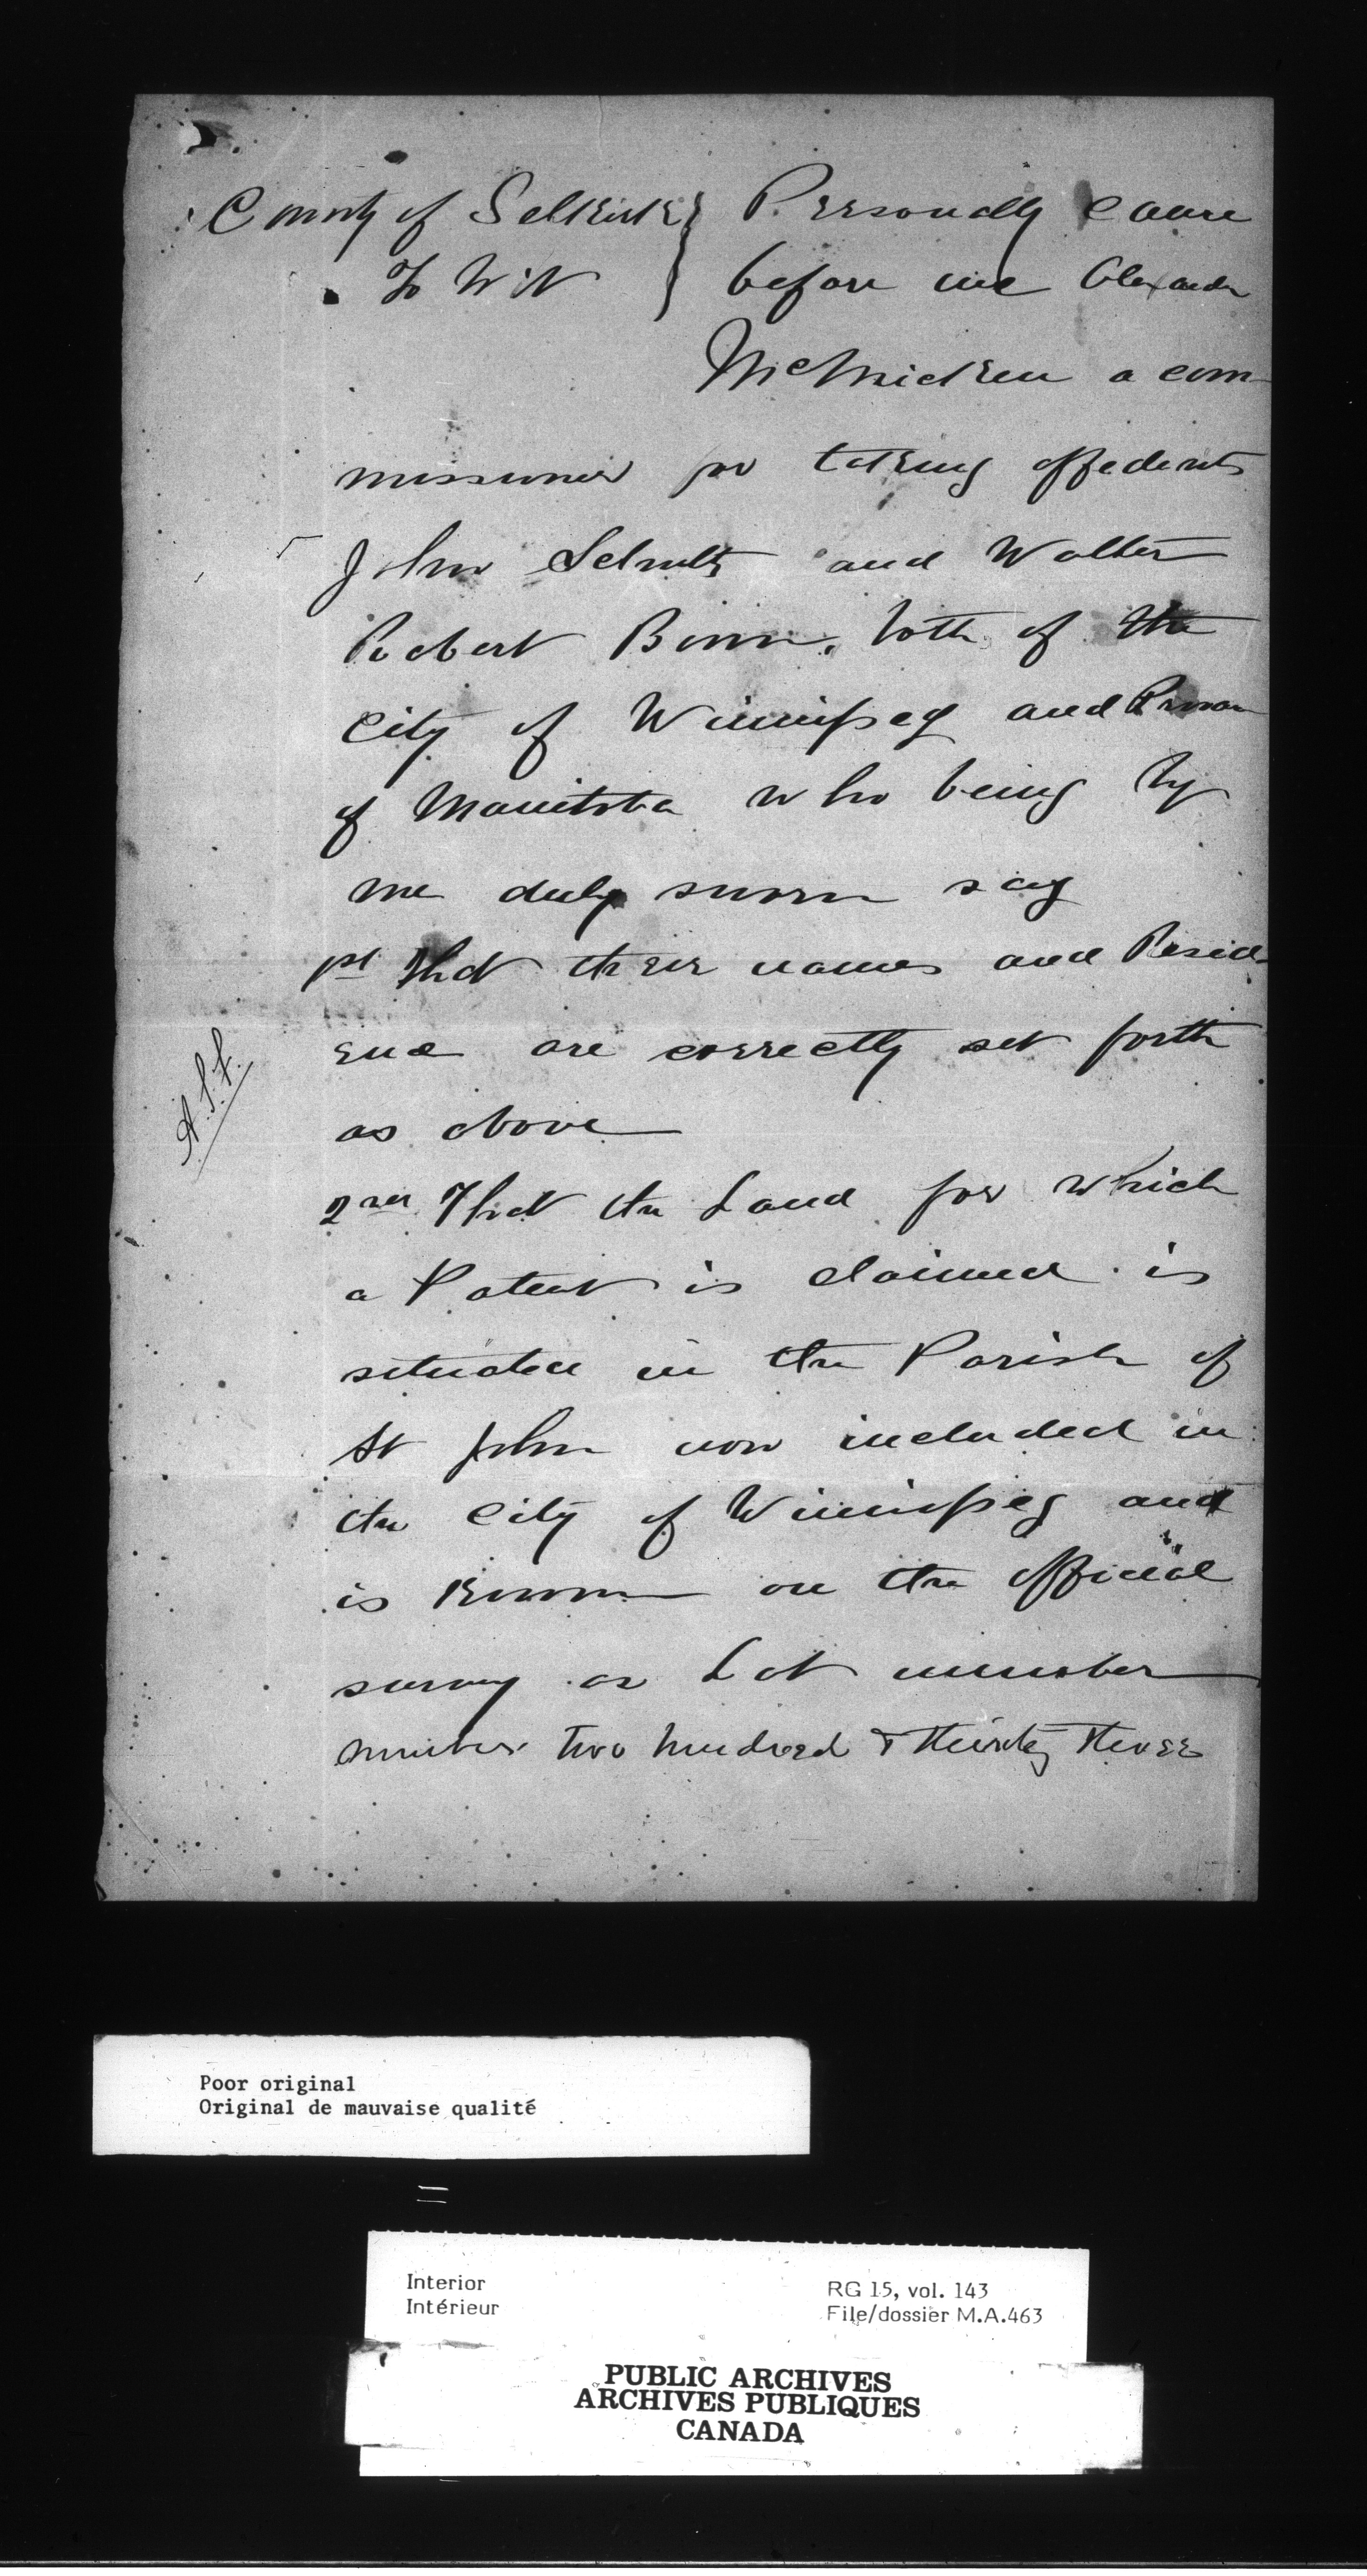 County of Selkirk } Personally came
To Wit } before me Alexander
McMicken a com-
missioner for taking affedavits
John Schultz and Walter
Robert Bown, both of the
City of Winnipeg and
of Manitoba who being by
me duly sworn say
1st That their names and Resid-
ence are correctly set forth
as above
2nd That the Land for which
a Patent is claimed is
situated in the Parish of
St John now included in
the City of Winnipeg and
is known on the official
survey as Lot number
number two hundred & thirty three
Poor original
Original de mauvaise qualité
Interior
Intérieur
RG 15, vol. 143
File/dossier M.A.463
PUBLIC ARCHIVES
ARCHIVES PUBLIQUES
CANADA